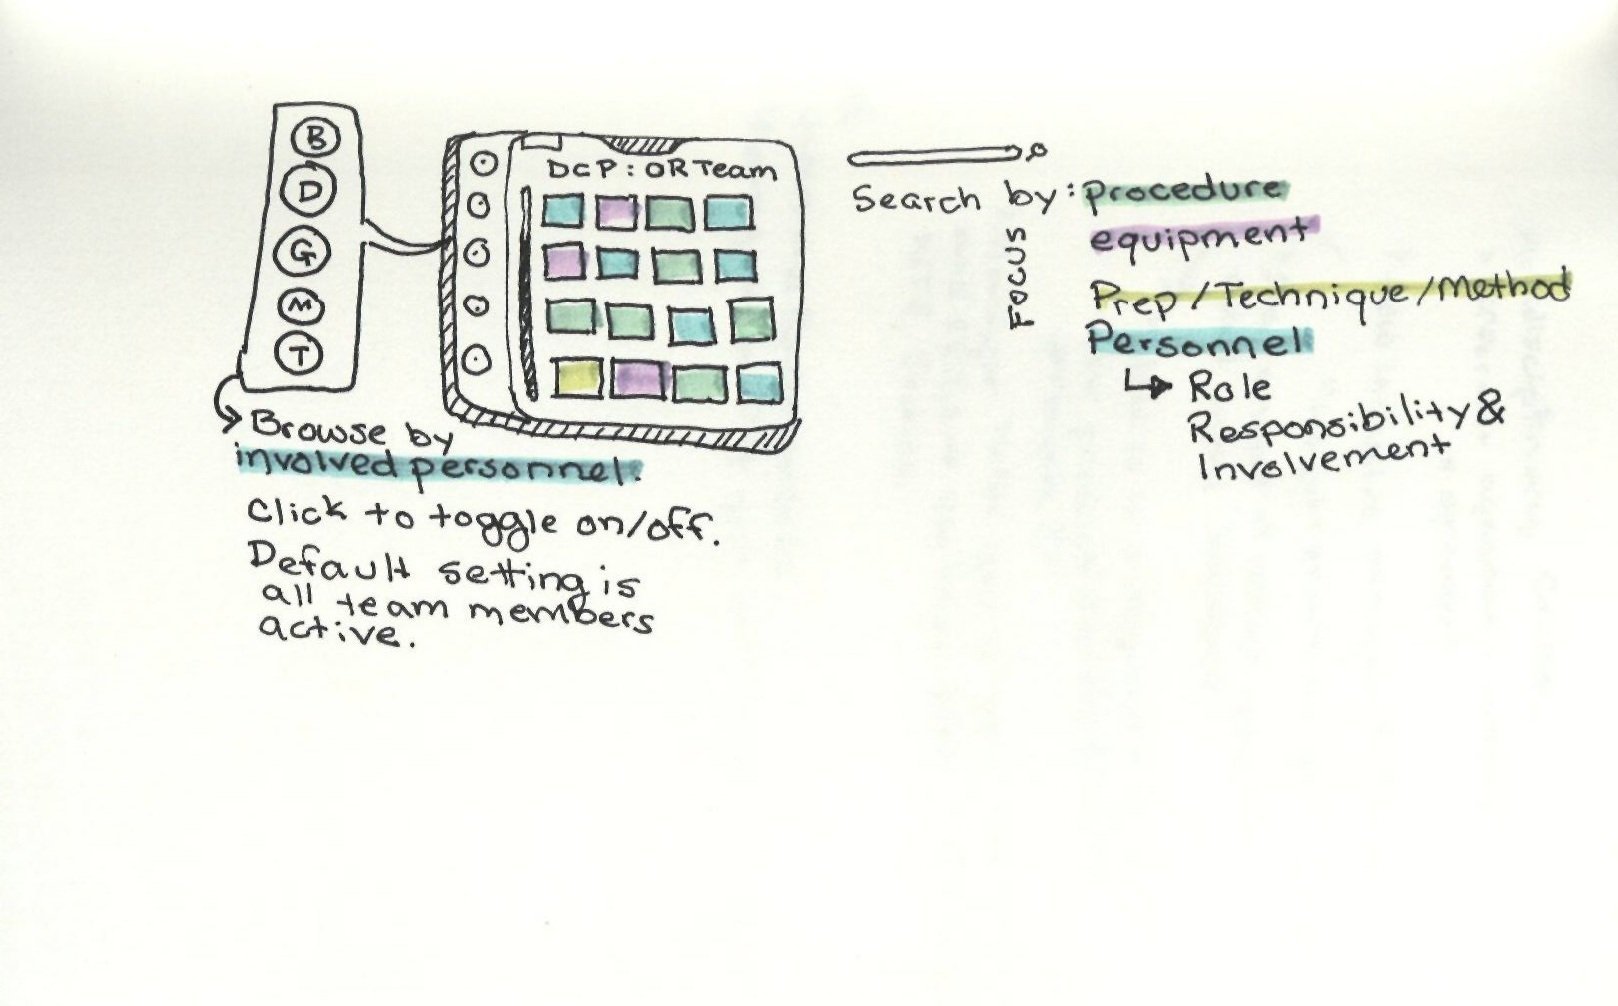 B
D
G
M
T
DCP: OR Team
Search by: procedure
equipment
Prep/Technique/Method
Personnel
Role
Responsibility &
Involvement
FOCUS
Browse by
involved personnel.
Click to toggle on/off.
Default setting is
all team members
active.